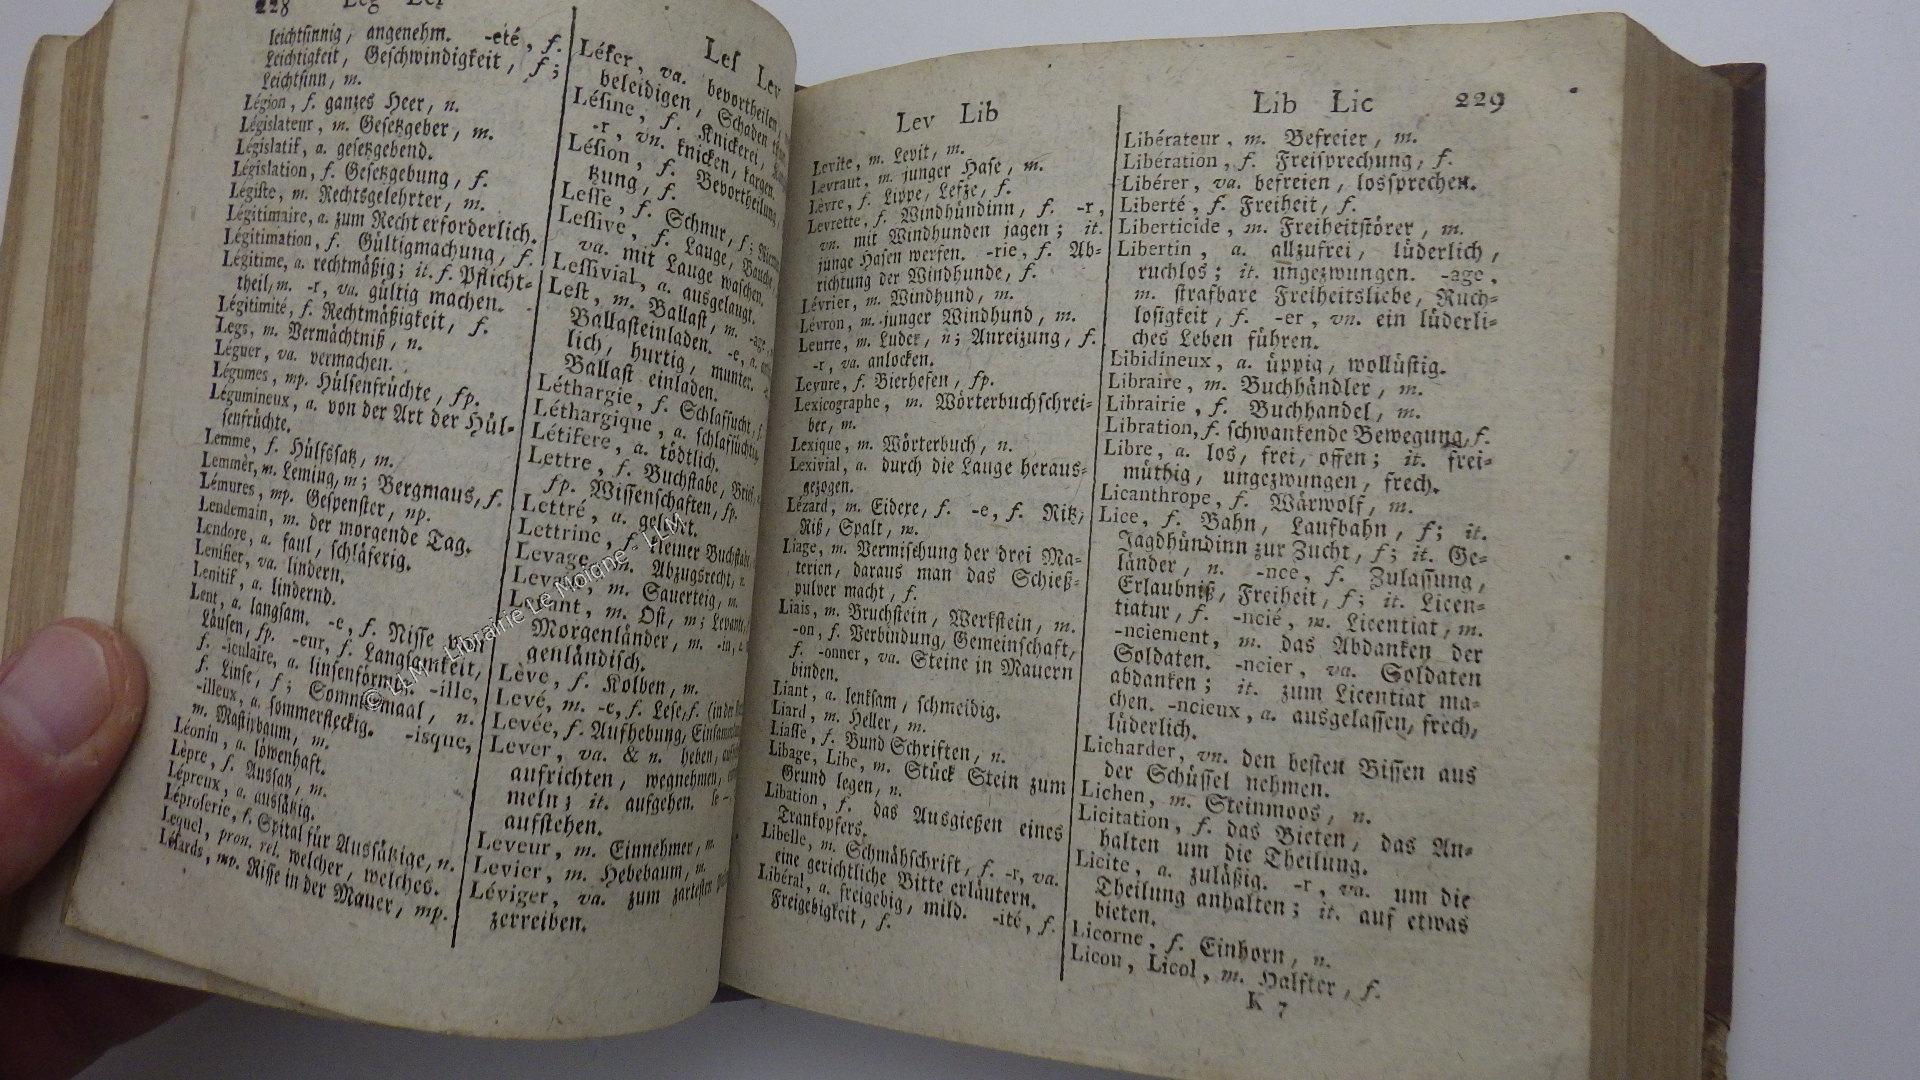 228 Leg Lei
leichtsinnig, angenehm. -eté, f.
Leichtigkeit, Geschwindigkeit, f;
Leichtsinn, m.
Légion, f. ganzes Heer, n.
Législateur, m. Gesetzgeber, m.
Législatif, a. gesetzgebend.
Législation, f. Gesetzgebung, f.
Légiste, m. Rechtsgelehrter, m.
Légitimaire, a. zum Recht erforderlich.
Légitimation, f. Gültigmachung, f.
Légitime, a. rechtmäßig; it. f. Pflicht-
theil, m. -r, va. gültig machen.
Légitimité, f. Rechtmäßigkeit, f.
Legs, m. Vermächtniß, n.
Léguer, va. vermachen.
Légumes, mp. Hülsenfrüchte, fp.
Légumineux, a. von der Art der Hül-
senfrüchte.
Lemme, f. Hülfssatz, m.
Lemmèr, m. Leming, m; Bergmaus, f.
Lémures, mp. Gespenster, np.
Lendemain, m. der morgende Tag.
Lendore, a. faul, schläferig.
Lenifier, va. lindern.
Lenitif, a. lindernd.
Lent, a. langsam. -e, f. Nisse von
Läusen, fp. -eur, f. Langsamkeit,
f. -iculaire, a. linsenförmig. -ille,
f. Linse, f; Sommermaal, n.
-illeux, a. sommerfleckig. -isque,
m. Mastixbaum, m.
Léonin, a. löwenhaft.
Lèpre, f. Aussatz, m.
Lépreux, a. aussätzig.
Léproserie, f. Spital für Aussätzige, n.
Lequel, pron. rel. welcher, welches.
Lésards, mp. Risse in der Mauer, mp.
Les Lev
Léser, va. bevortheilen,
beleidigen, Schaden
Lésine, f. Knickerei,
-r, vn. knicken, kargen.
Lésion, f. Bevortheilung,
tzung, f.
Lesse, f. Schnur, f;
Lessive, f. Lauge,
va. mit Lauge waschen.
Lessivial, a. ausgelaugt.
Lest, m. Ballast, m.
Ballasteinladen. -e, a.
lich, hurtig, munter.
Ballast einladen.
Léthargie, f. Schlafsucht,
Léthargique, a. schlafsüchtig.
Létifere, a. tödtlich.
Lettre, f. Buchstabe,
fp. Wissenschaften, fp.
Lettré, a. gelehrt.
Lettrine, f. kleiner Buchstabe,
Levage, m. Abzugsrecht,
m. Sauerteig, m.
Levant, m. Ost, m; Levante,
Morgenländer, m.
genländisch.
Lève, f. Kolben, m.
Levé, m. -e, f. Lese, f. (in der
Levée, f. Aufhebung,
Lever, va. & n. heben,
aufrichten, wegnehmen,
meln; it. aufgehen.
aufstehen.
Leveur, m. Einnehmer, m.
Levier, m. Hebebaum, m.
Léviger, va. zum zartesten
zerreiben.
Lev Lib
Levite, m. Levit, m.
Levraut, m. junger Hase, m.
Lèvre, f. Lippe, Lefze, f.
Levrette, f. Windhündinn, f. -r,
vn. mit Windhunden jagen; it.
junge Hasen werfen. -rie, f. Ab-
richtung der Windhunde, f.
Lévrier, m. Windhund, m.
Lévron, m. junger Windhund, m.
Leurre, m. Luder, n; Anreizung, f.
-r, va. anlocken.
Levure, f. Bierhefen, fp.
Lexicographe, m. Wörterbuchschrei-
ber, m.
Lexique, m. Wörterbuch, n.
Lexivial, a. durch die Lauge heraus-
gezogen.
Lézard, m. Eidere, f. -e, f. Ritz,
Riß, Spalt, m.
Liage, m. Vermischung der drei Ma-
terien, daraus man das Schieß-
pulver macht, f.
Liais, m. Bruchstein, Werkstein, m.
-on, f. Verbindung, Gemeinschaft,
f. -onner, va. Steine in Mauern
binden.
Liant, a. lenksam, schmeidig.
Liard, m. Heller, m.
Liasse, f. Bund Schriften, n.
Libage, Libe, m. Stück Stein zum
Grund legen, n.
Libation, f. das Ausgießen eines
Trankopfers.
Libelle, m. Schmähschrift, f. -r, va.
eine gerichtliche Bitte erläutern.
Libéral, a. freigebig, mild. -ité, f.
Freigebigkeit, f.
Lib Lic 229
Libérateur, m. Befreier, m.
Libération, f. Freisprechung, f.
Libérer, va. befreien, lossprechen.
Liberté, f. Freiheit, f.
Liberticide, m. Freiheitstörer, m.
Libertin, a. allzufrei, lüderlich,
ruchlos; it. ungezwungen. -age,
m. strafbare Freiheitsliebe, Ruch-
losigkeit, f. -er, vn. ein lüderli-
ches Leben führen.
Libidineux, a. üppig, wollüstig.
Libraire, m. Buchhändler, m.
Librairie, f. Buchhandel, m.
Libration, f. schwankende Bewegung, f.
Libre, a. los, frei, offen; it. frei-
müthig, ungezwungen, frech.
Licanthrope, f. Wärwolf, m.
Lice, f. Bahn, Laufbahn, f; it.
Jagdhündinn zur Zucht, f; it. Ge-
länder, n. -nce, f. Zulassung,
Erlaubniß, Freiheit, f; it. Licen-
tiatur, f. -ncié, m. Licentiat, m.
-nciement, m. das Abdanken der
Soldaten. -ncier, va. Soldaten
abdanken; it. zum Licentiat ma-
chen. -ncieux, a. ausgelassen, frech,
lüderlich.
Licharder, vn. den besten Bissen aus
der Schüssel nehmen.
Lichen, m. Steinmoos, n.
Licitation, f. das Bieten, das An-
halten um die Theilung.
Licite, a. zuläßig. -r, va. um die
Theilung anhalten; it. auf etwas
bieten.
Licorne, f. Einhorn, n.
Licou, Licol, m. Halfter, f.
K 7
© LLM - Librairie Le Moigne - LLM